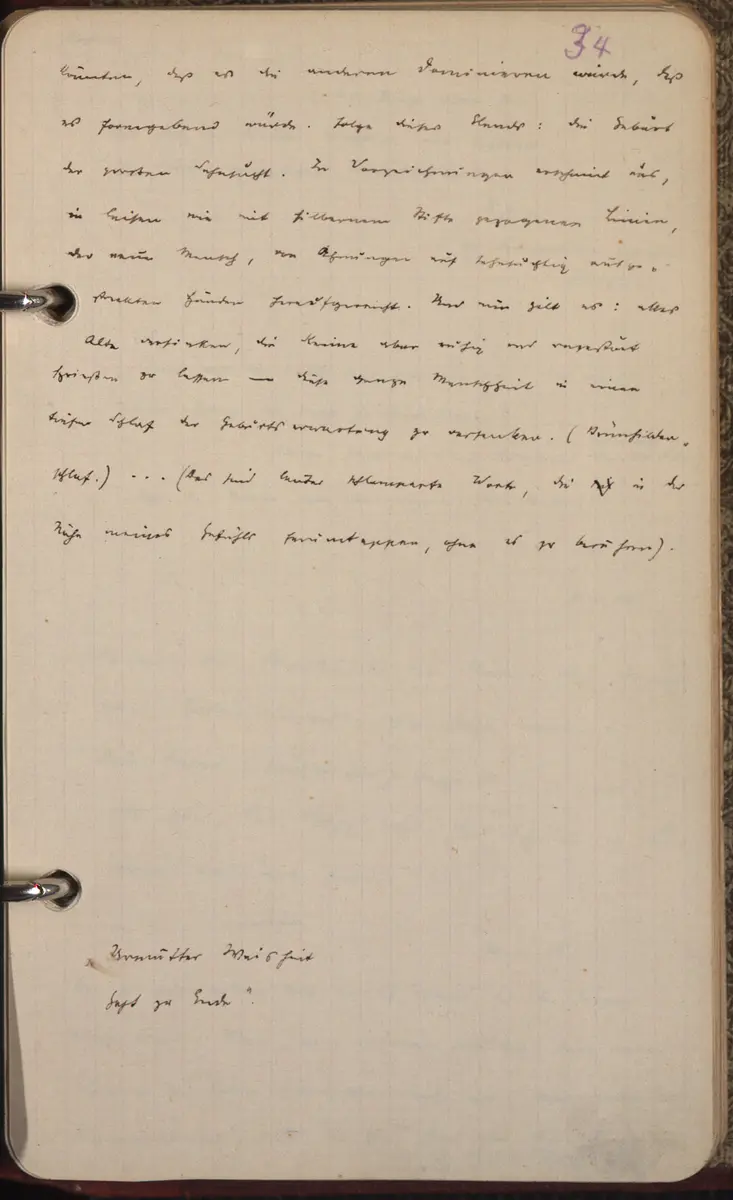 34
könnten, daß es die anderen dominieren würde, daß
es formgebend würde. Folge dieses Elends: die Geburt
der großen Sehnsucht. In Vorzeichnungen erscheint uns,
in leisen wie mit silbernem Stifte gezogenen Linien,
der neue Mensch, von Ahnungen auf sehnsüchtig ausge-
streckten Händen heraufgereicht. Und nun gilt es: alles
Alte versinken, die Keime aber ruhig und ungestört
sprießen zu lassen — diese ganze Menschheit in einen
tiefen Schlaf der Geburtserwartung zu versenken. (Brünhilden-
schlaf.) ... (Das sind lauter schlemperte Worte, die in der
Nähe meines Gefühls herumtappen, ohne es zu berühren).
Urmutter Weisheit
geht zu Ende".